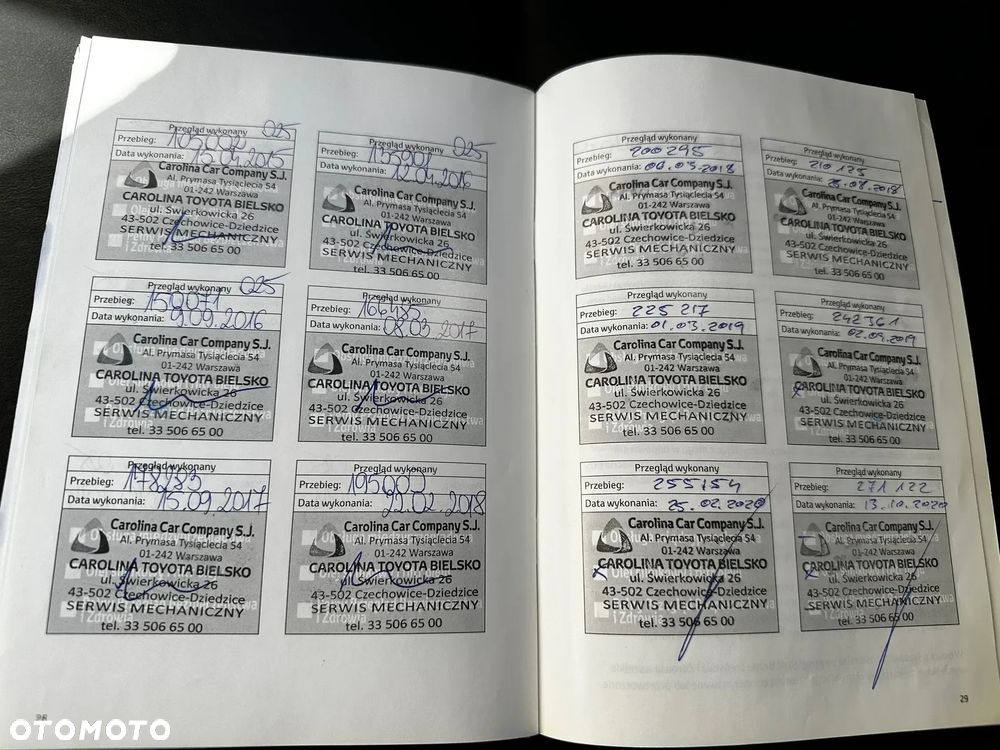 Przegląd wykonany
025
Przebieg: 105002
Data wykonania: 15.04.2015
Carolina Car Company S.J.
Al. Prymasa Tysiąclecia 54
01-242 Warszawa
CAROLINA TOYOTA BIELSKO
ul. Świerkowicka 26
43-502 Czechowice-Dziedzice
SERWIS MECHANICZNY
tel. 33 506 65 00
i Zdrowia
Przegląd wykonany
025
Przebieg: 135901
Data wykonania: 12.04.2016
Carolina Car Company S.J.
Al. Prymasa Tysiąclecia 54
01-242 Warszawa
CAROLINA TOYOTA BIELSKO
ul. Świerkowicka 26
43-502 Czechowice-Dziedzice
SERWIS MECHANICZNY
tel. 33 506 65 00
i Zdrowia
Przegląd wykonany
025
Przebieg: 150071
Data wykonania: 9.09.2016
Carolina Car Company S.J.
Al. Prymasa Tysiąclecia 54
01-242 Warszawa
CAROLINA TOYOTA BIELSKO
ul. Świerkowicka 26
43-502 Czechowice-Dziedzice
SERWIS MECHANICZNY
i Zdrowia
tel. 33 506 65 00
Przegląd wykonany
Przebieg: 166485
Data wykonania: 08.03.2017
Carolina Car Company S.J.
Al. Prymasa Tysiąclecia 54
01-242 Warszawa
CAROLINA TOYOTA BIELSKO
ul. Świerkowicka 26
43-502 Czechowice-Dziedzice
SERWIS MECHANICZNY
i Zdrowia
tel. 33 506 65 00
Przegląd wykonany
Przebieg: 178783
Data wykonania: 15.09.2017
Carolina Car Company S.J.
Al. Prymasa Tysiąclecia 54
01-242 Warszawa
CAROLINA TOYOTA BIELSKO
ul. Świerkowicka 26
43-502 Czechowice-Dziedzice
SERWIS MECHANICZNY
i Zdrowia
tel. 33 506 65 00
Przegląd wykonany
Przebieg: 195003
Data wykonania: 22.02.2018
Carolina Car Company S.J.
Al. Prymasa Tysiąclecia 54
01-242 Warszawa
CAROLINA TOYOTA BIELSKO
ul. Świerkowicka 26
43-502 Czechowice-Dziedzice
SERWIS MECHANICZNY
i Zdrowia
tel. 33 506 65 00
Przegląd wykonany
Przebieg: 200295
Data wykonania: 06.03.2018
Carolina Car Company S.J.
Al. Prymasa Tysiąclecia 54
01-242 Warszawa
CAROLINA TOYOTA BIELSKO
ul. Świerkowicka 26
43-502 Czechowice-Dziedzice
SERWIS MECHANICZNY
i Zdrowia
tel. 33 506 65 00
Przegląd wykonany
Przebieg: 210 125
Data wykonania: 28.08.2018
Carolina Car Company S.J.
Al. Prymasa Tysiąclecia 54
01-242 Warszawa
CAROLINA TOYOTA BIELSKO
ul. Świerkowicka 26
43-502 Czechowice-Dziedzice
SERWIS MECHANICZNY
i Zdrowia
tel. 33 506 65 00
Przegląd wykonany
Przebieg: 225 217
Data wykonania: 01.03.2019
Carolina Car Company S.J.
Al. Prymasa Tysiąclecia 54
01-242 Warszawa
CAROLINA TOYOTA BIELSKO
ul. Świerkowicka 26
43-502 Czechowice-Dziedzice
SERWIS MECHANICZNY
i Zdrowia
tel. 33 506 65 00
Przegląd wykonany
Przebieg: 242361
Data wykonania: 02.09.2019
Carolina Car Company S.J.
Al. Prymasa Tysiąclecia 54
01-242 Warszawa
CAROLINA TOYOTA BIELSKO
ul. Świerkowicka 26
43-502 Czechowice-Dziedzice
SERWIS MECHANICZNY
i Zdrowia
tel. 33 506 65 00
Przegląd wykonany
Przebieg: 255154
Data wykonania: 25.02.2020
Carolina Car Company S.J.
Al. Prymasa Tysiąclecia 54
01-242 Warszawa
CAROLINA TOYOTA BIELSKO
ul. Świerkowicka 26
43-502 Czechowice-Dziedzice
SERWIS MECHANICZNY
i Zdrowia
tel. 33 506 65 00
Przegląd wykonany
Przebieg: 271 122
Data wykonania: 13.10.2020
Carolina Car Company S.J.
Al. Prymasa Tysiąclecia 54
01-242 Warszawa
CAROLINA TOYOTA BIELSKO
ul. Świerkowicka 26
43-502 Czechowice-Dziedzice
SERWIS MECHANICZNY
i Zdrowia
tel. 33 506 65 00
29
OTOMOTO